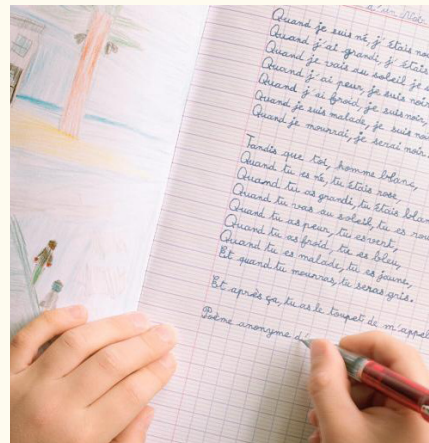 Quand je suis né, j'étais no
Quand j'ai grandi, j'étais
Quand je vais au soleil je s
Quand j'ai peur, je suis noir
Quand j'ai froid, je suis noir,
Quand je suis malade, je suis no
Quand je mourrai, je serai noir.
Tandis que toi, homme blanc,
Quand tu es né, tu étais rose,
Quand tu as grandi, tu étais blan
Quand tu vas au soleil, tu es rou
Quand tu as peur, tu es vert,
Quand tu as froid, tu es bleu,
Quand tu es malade, tu es jaune,
Et quand tu mourras, tu seras gris.
Et après ça, tu as le toupet de m'appel
Poème anonyme